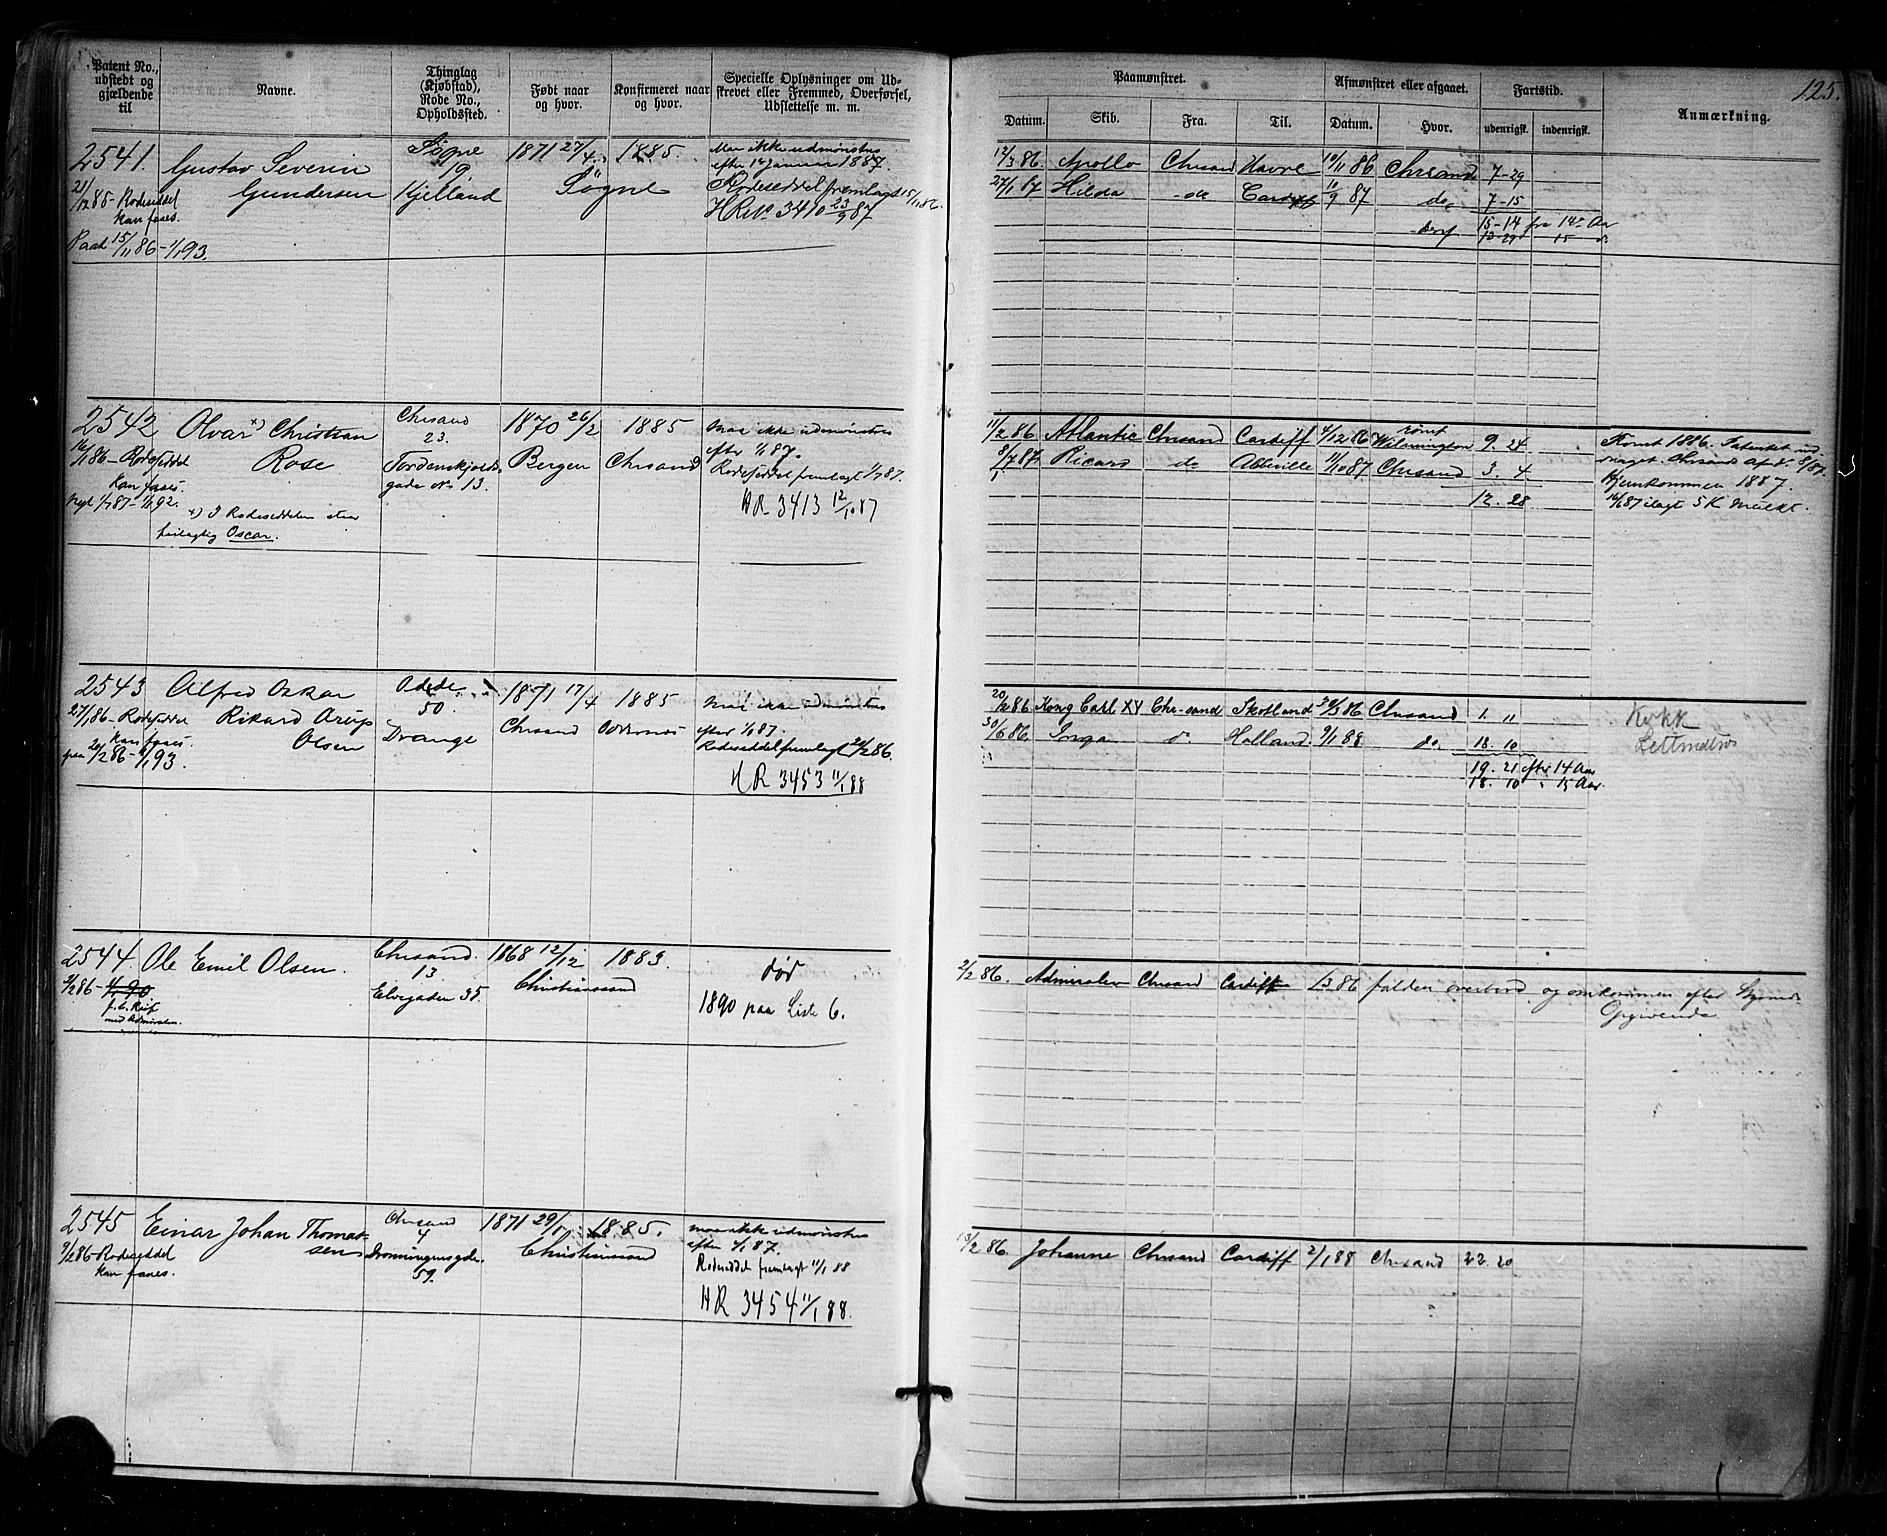 125.
Patent No., udstedt og gjældende til
Navne.
Thinglag (Kjøbstad), Rode No., Opholdssted.
Født naar og hvor.
Konfirmeret naar og hvor.
Specielle Oplysninger om Udskrevet eller Fremmed, Overførsel, Udslettelse m. m.
Paamønstret.
Afmønstret eller afgaaet.
Fartstid.
Anmærkning.
Datum. Skib. Fra. Til. Datum. Hvor. udenrigsk. indenrigsk.
2541. Gustav Severin Gundersen
21/12 85 - Rodeseddel
kan faaes.
15/11 86 - 1/1 93.
Søgne
19.
Kjelland
1871 27/4 1885.
Søgne
Maa ikke udmønstres
efter 1ste Januar 1887.
Rodeseddel fremlagt 15/11 86.
HR No 3410 23/9 87
12/3 86. Apollo Chrsand Havre 10/11 86 Chrsand 7-29
27/1 87 Hilda do Cardiff 10/9 87 do 7-15
15-14 fra 14de Aar
13-29 15 d
2542 Olvar x) Christian
Rose
16/1 86 - Rodeseddel
kan faaes.
Nyt 1/7 87 - 1/1 92.
x) I Rodeseddelen staar
feilagtig Oscar.
Chrsand
23.
Tordenskjolds
gade No 13.
1870 26/2 1885
Bergen Chrsand
Maa ikke udmønstres
efter 1/1 87.
Rodeseddel fremlagt 1/7 87.
HR 3413 12/10 87
11/2 86. Atlantic Chrsand Cardiff 4/12 86 rømt Wilmington 9. 24
8/7 87. Ricard do Abbeville 11/10 87 Chrsand 3. 4
12. 28
Rømt 1886. Patentet ind
draget. Chrsands Afd. 8/87.
Hjemkommen 1887.
16/6 87 ilagt 5 K Mulkt.
2543 Alfred Oskar
Rikard Arup
Olsen
27/1 86 - Rodeseddel
kan faaes.
20/2 86 - 1/1 93.
Oddernæs
50.
Drange
1871 17/4 1885
Chrsand Oddernæs
Maa ikke udmønstres
efter 1/1 87.
Rodeseddel fremlagt 20/2 86.
HR 3453 11/1 88
20/2 86 Kong Carl XV Chr-sand Skotland 30/3 86 Chrsand 1. "
30/6 86. Inga do Holland 9/1 88 do 18. 10
19. 21 efter 14 Aar
18. 10 " 15 Aar.
Kokk
Letmatros
2544. Ole Emil Olsen.
2/2 86 - 1/1 90
med Admiralen.
Chrsand.
13
Elvegaden 35.
1868 12/12 1883.
Christianssand
død
1890 paa Liste 6.
2/2 86. Admiralen Chrsand Cardiff 1/3 86 falden overbord og omkommen efter Styrmds
Opgivende
2545 Einar Johan Thomas-
sen
9/2 86 - Rodeseddel
kan faaes.
Chrsand
4
Dronningensgde.
59.
1871 29/1 1885.
Christianssand
maa ikke udmønstres
efter 1/1 87.
Rodeseddel fremlagt 11/1 88
HR 3454 11/1 88.
13/2 86. Johanne Chrsand Cardiff 2/1 88 Chrsand 22. 20